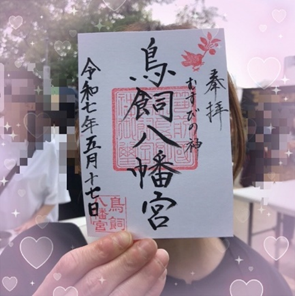 奉拝
むすびの神
鳥飼八幡宮
令和七年五月十七日
鳥飼
八幡宮